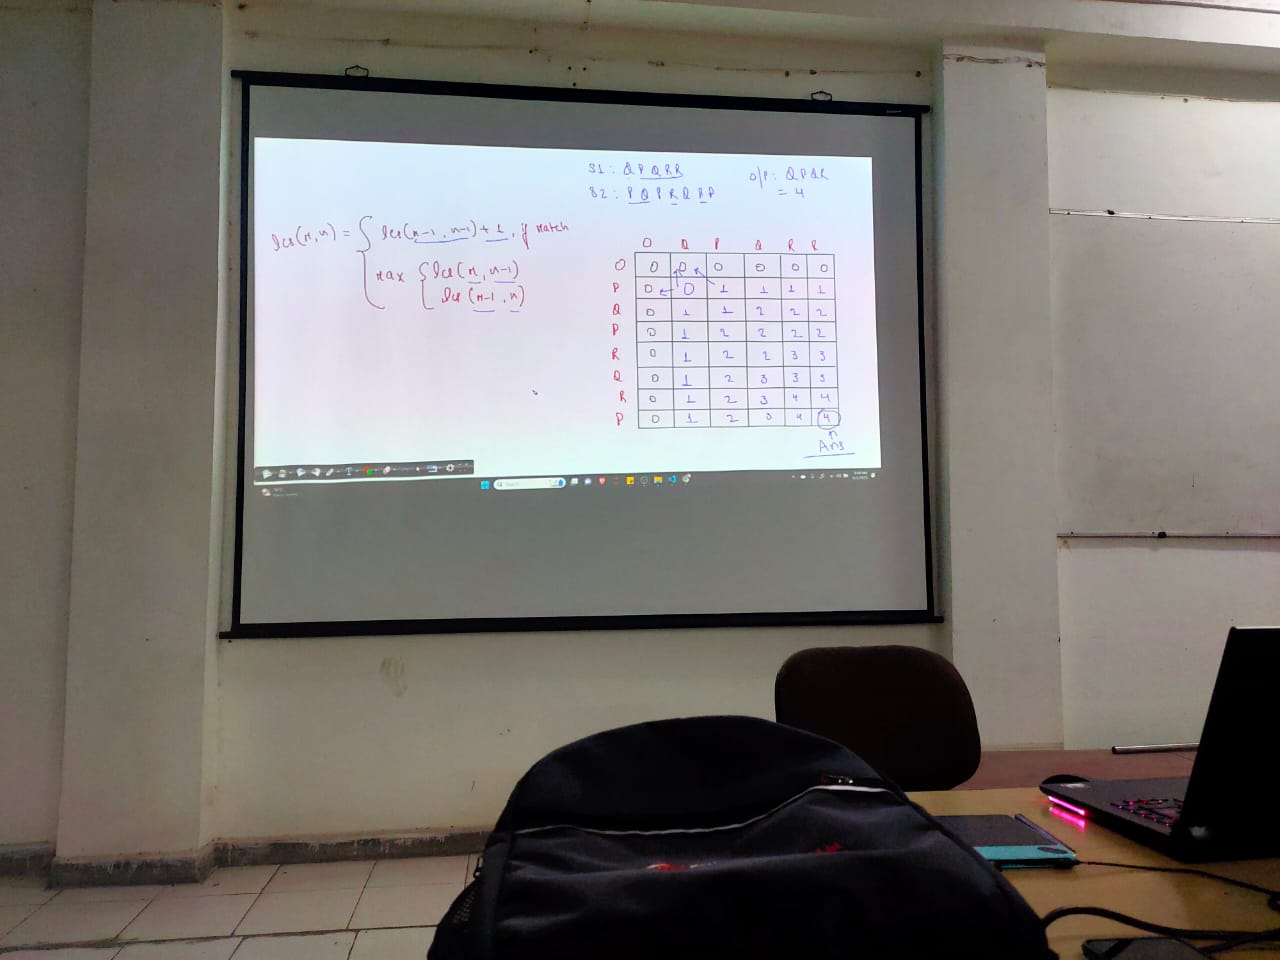 S1: QPQRR
S2: PQPRQRP
O/P: QPQR
= 4
lcs(m,n) = { lcs(m-1, n-1) + 1, if match
max { lcs(m, n-1)
lcs(m-1, n)
0 Q P Q R R
0 0 0 0 0 0 0
P 0 0 1 1 1 1
Q 0 1 1 2 2 2
P 0 1 2 2 2 2
R 0 1 2 2 3 3
Q 0 1 2 3 3 3
R 0 1 2 3 4 4
P 0 1 2 3 4 4
Ans
Search